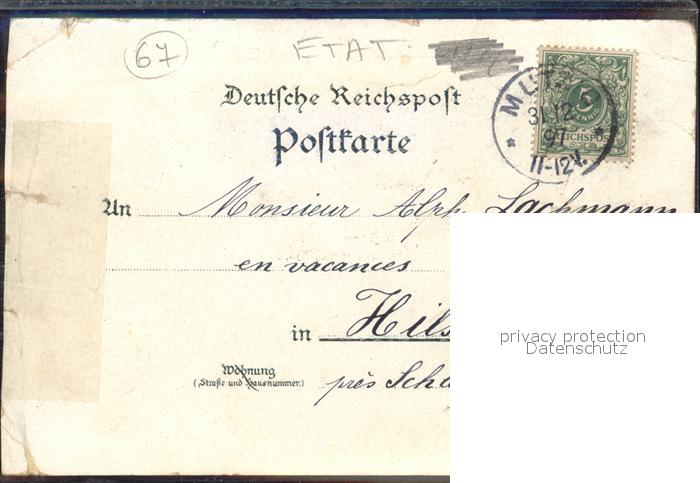 67 ETAT
Deutsche Reichspost
Postkarte
5
PFENNIG
REICHSPOST
31 12
97
11-12V.
An Monsieur Alph. Lachmann
en vacances
in
Wohnung
(Straße und Hausnummer.)
près
privacy protection
Datenschutz